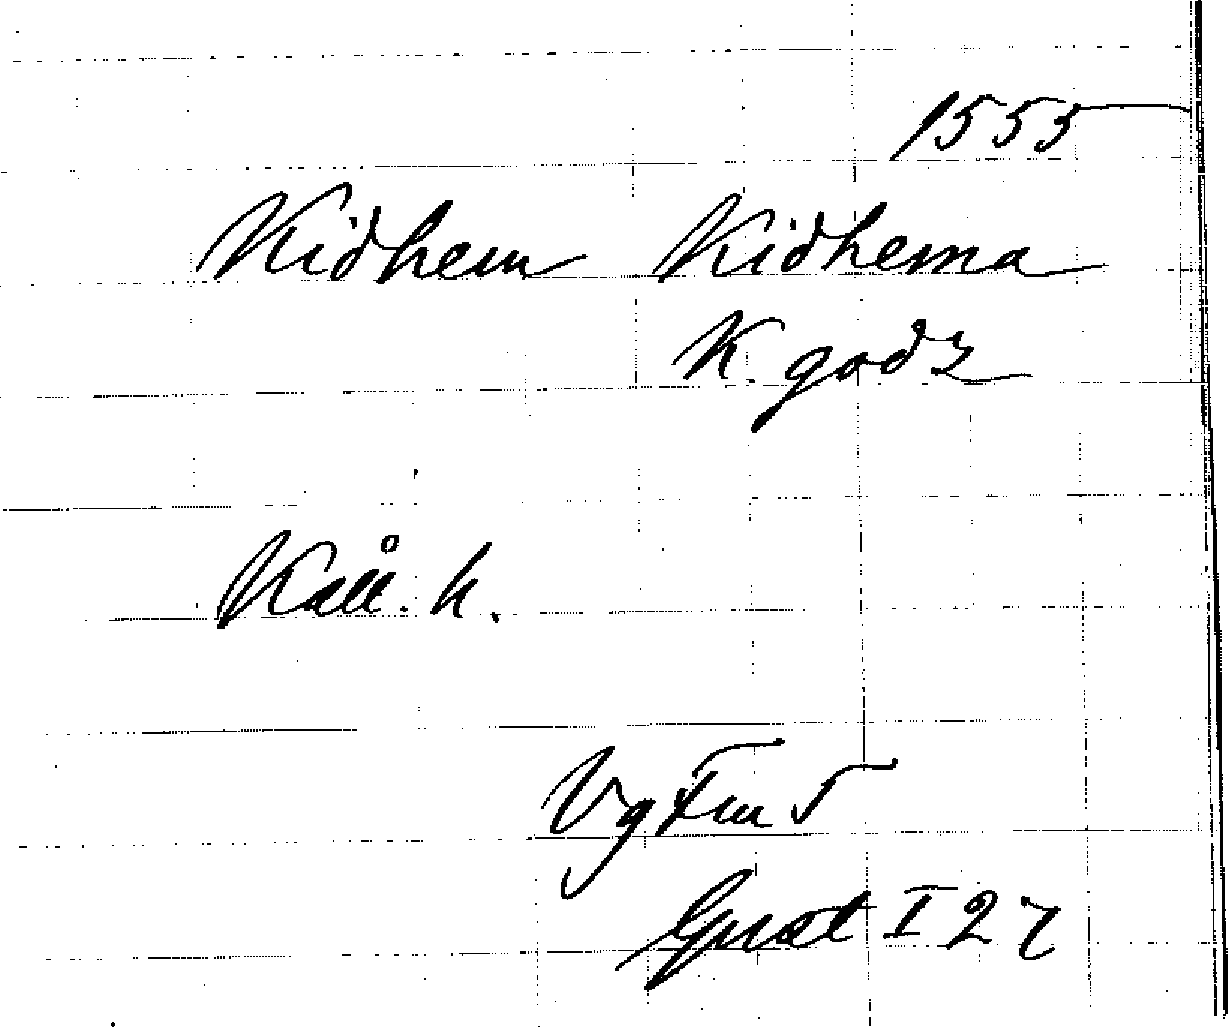 1555
Kidhem Kidhema
K. godz
Kåll. h.
Vg Fm 5
Gust I 27